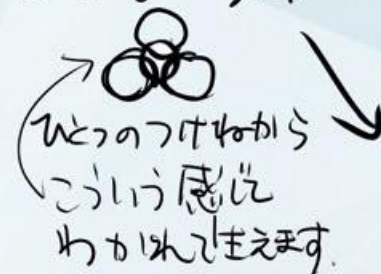 ひとつのつけねから
こういう感じで
わかれて生えます.